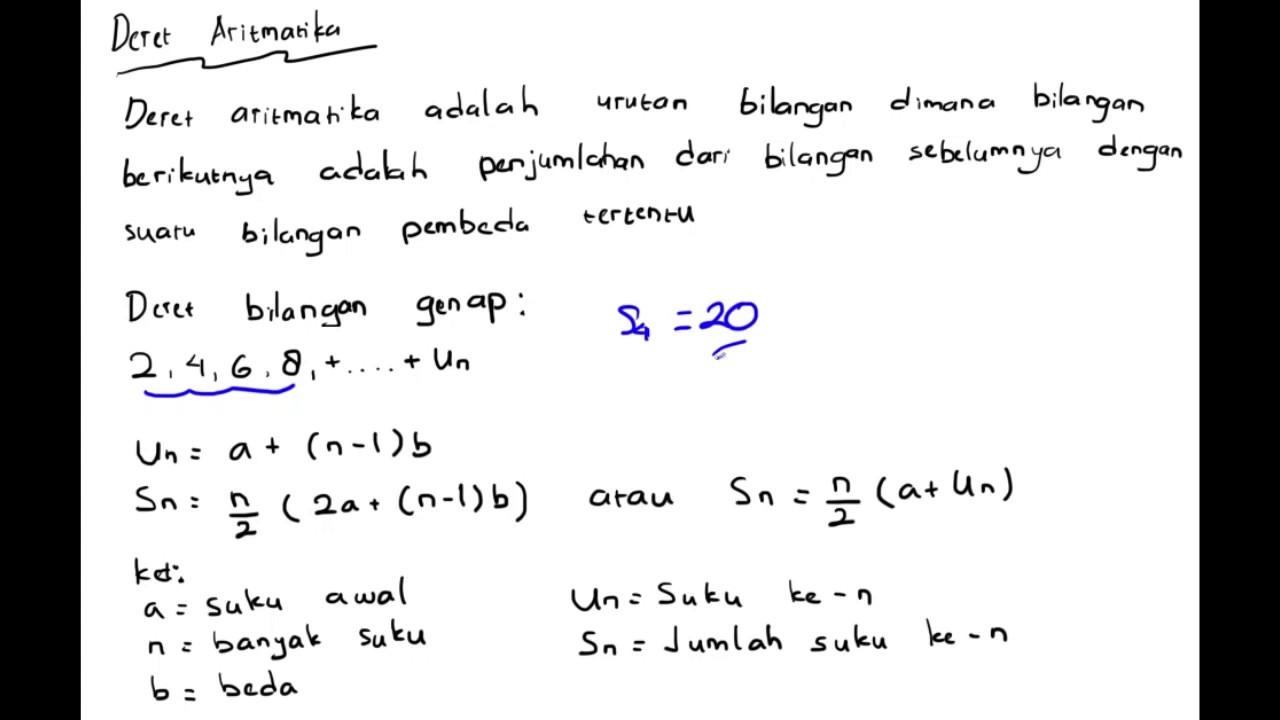 Deret Aritmatika
Deret aritmatika adalah urutan bilangan dimana bilangan
berikutnya adalah penjumlahan dari bilangan sebelumnya dengan
suatu bilangan pembeda tertentu
Deret bilangan genap:
S₄ = 20
2, 4, 6, 8, + .... + Un
Un = a + (n-1)b
Sn = n/2 (2a + (n-1)b) atau Sn = n/2 (a + Un)
ket:
a = suku awal
Un = Suku ke-n
n = banyak suku
Sn = Jumlah suku ke-n
b = beda